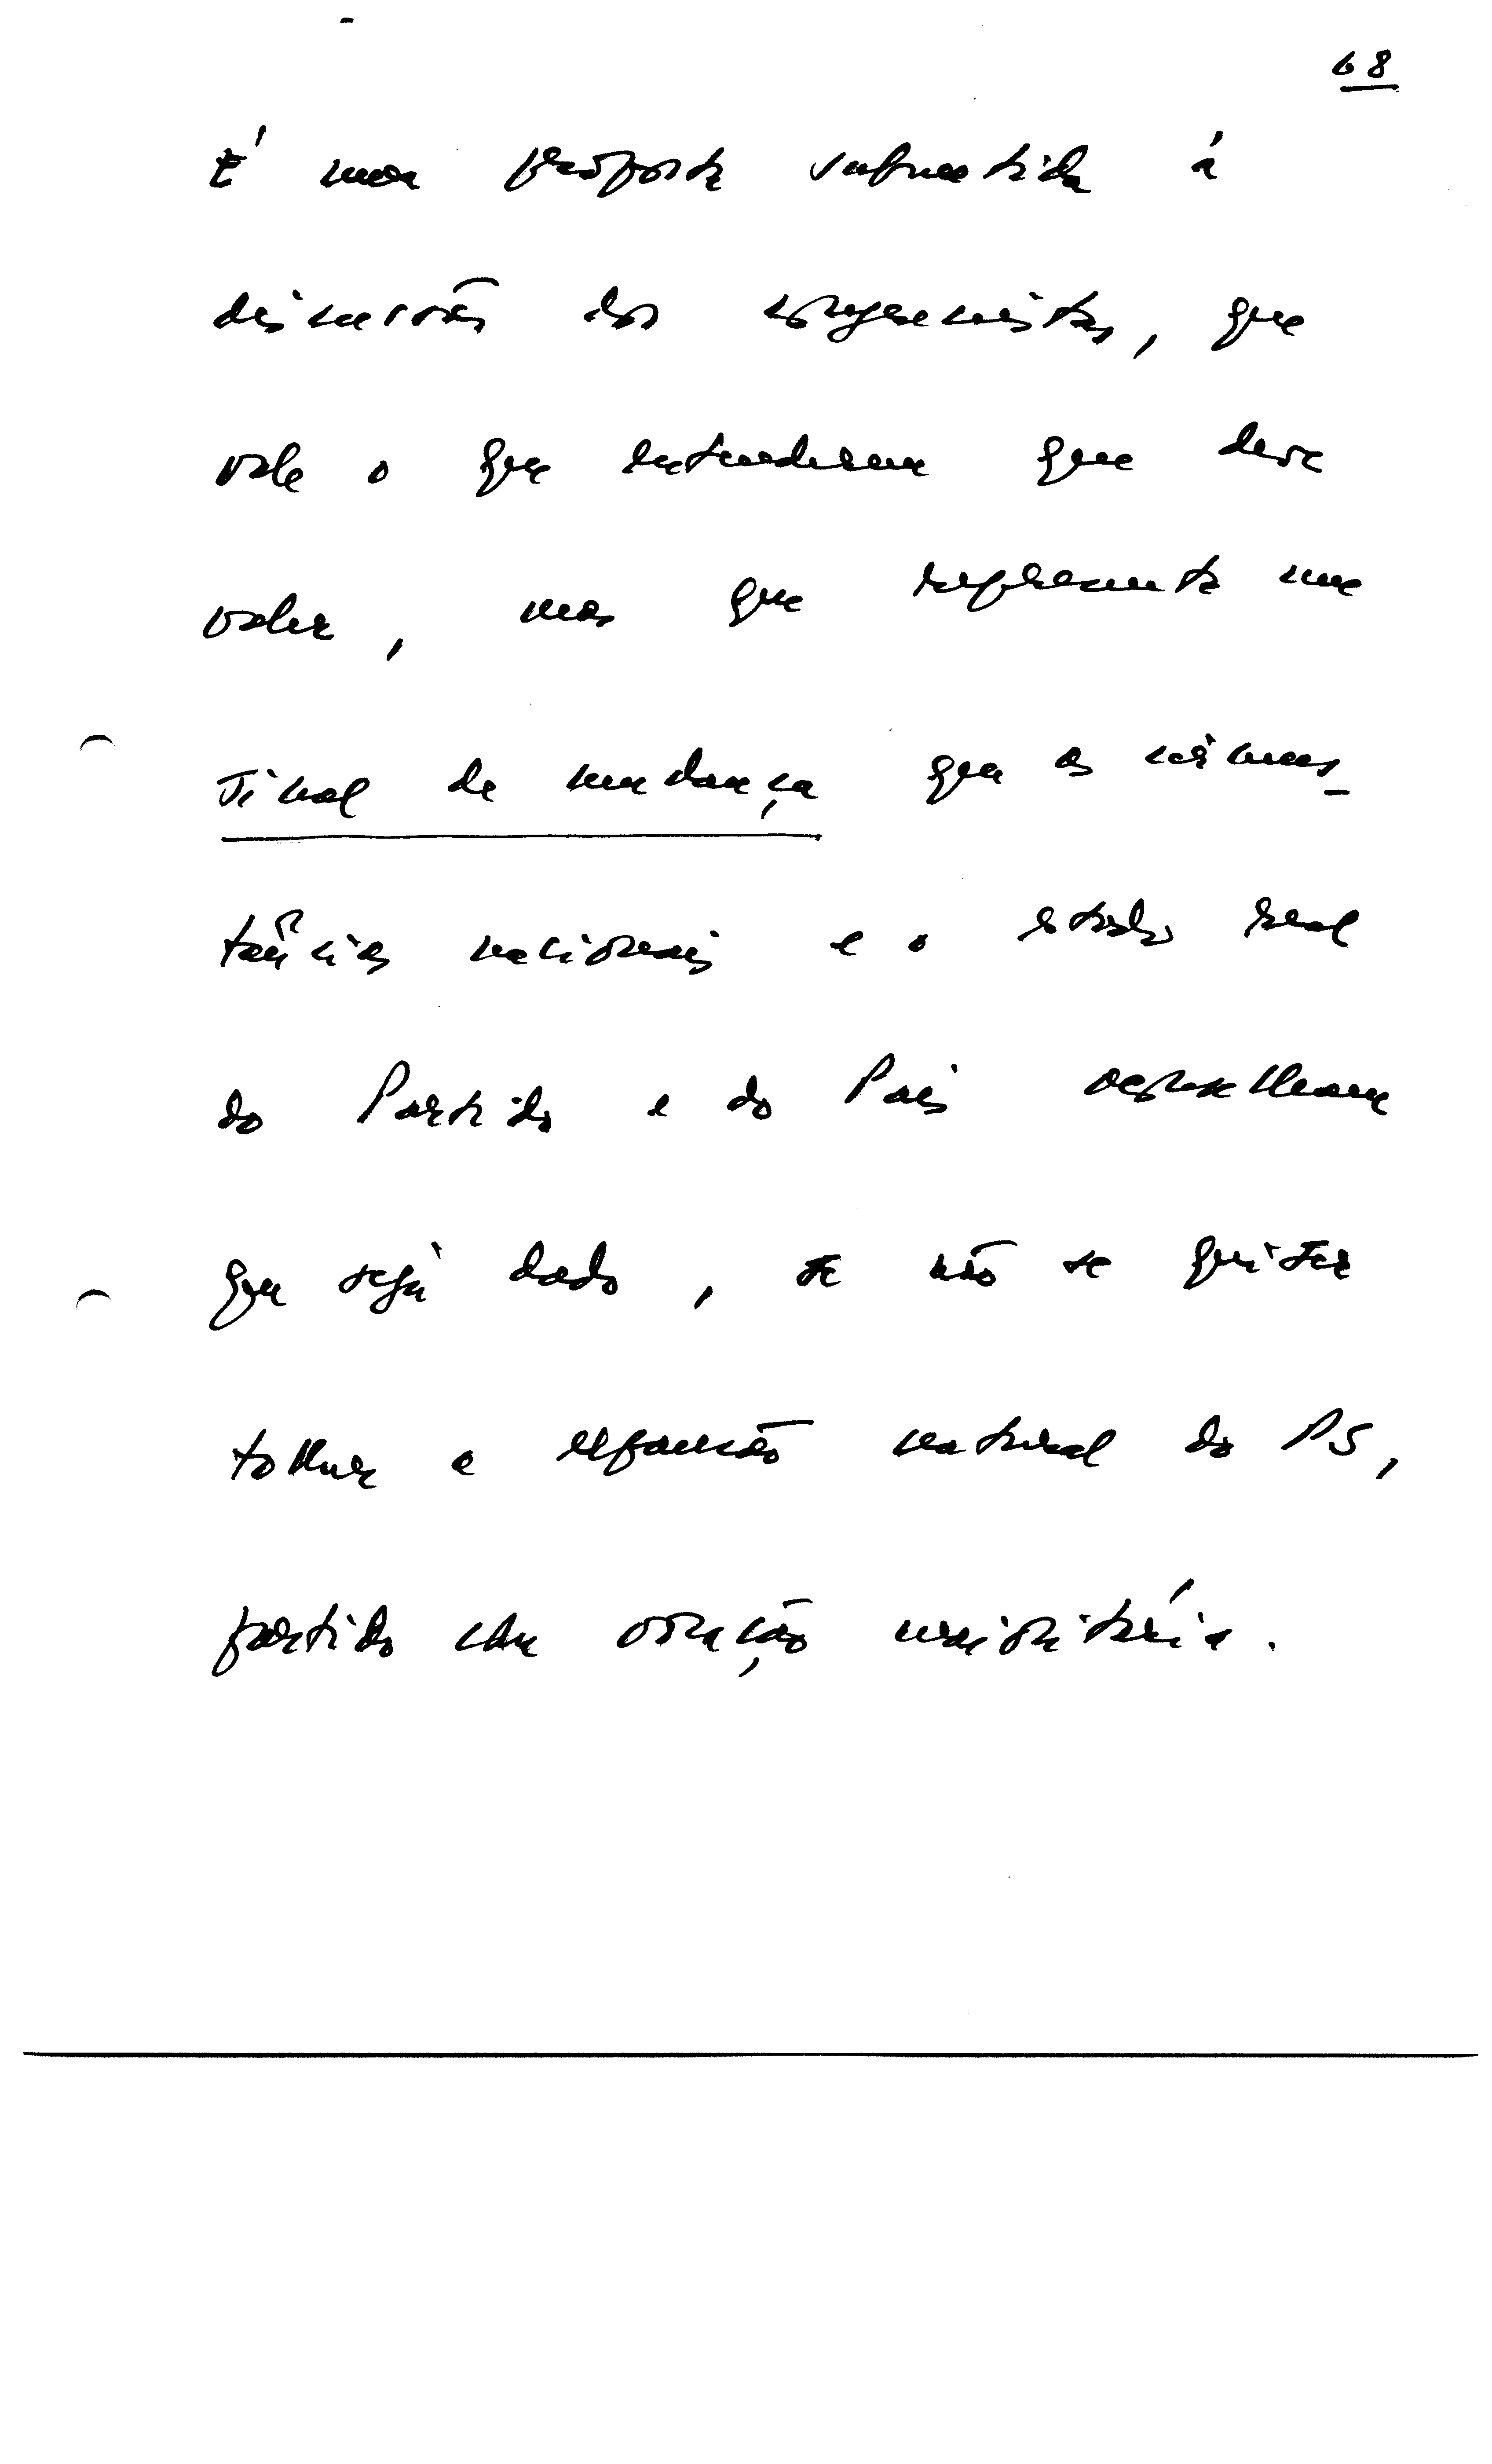 68
É uma proposta submetida à
discussão dos congressistas, que
vale o que entenderem que deve
valer, mas que representa um
sinal de mudança que as circuns-
tâncias nacionais e o estado real
do Partido e do País aconselham
que seja dado, se não se quiser
tolher a expansão natural do PS,
partido com vocação maioritária.